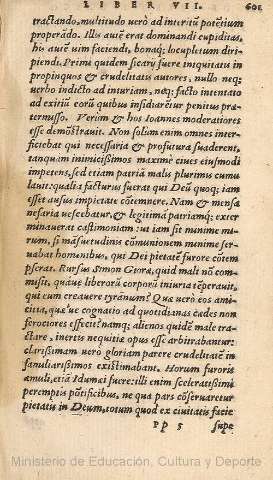 LIBER VII. 601
tractando, multitudo verò ad interitũ potẽtium
properãdo. Illis autẽ erat dominandi cupiditas,
his autẽ uim faciendi, bonaq; locupletium diri-
piendi. Prima quidem sicarij fuere iniquitatis in
propinquos & crudelitatis autores, nullo neq;
uerbo indicto ad iniuriam, neq; facto intentato
ad exitiũ eorũ quibus insidiarẽtur penitus præ-
termisso. Verùm & hos Ioannes moderatiores
esse demõstrauit. Non solùm enim omnes inter-
ficiebat qui necessaria & profutura suaderent,
tanquam inimicissimos maximè ciues eiusmodi
impetens, sed etiam patriã malis plurimis cumu
lauit: qualia facturus fuerat qui Deũ quoq; iam
esset ausus impietate cõtemnere. Nam & mensa
nefaria uescebatur, & legitimã patriamq; exter
minauerat castimoniam: ut iam sit minime mi-
rum, si mãsuetudinis cõmunionem minime ser-
uabat hominibus, qui Dei pietatẽ furore cõtem
pserat. Rursus Simon Gioræ, quid mali nõ com-
misit, quaue liberorũ corporũ iniuria tẽperauit,
qui eum creauere tyrãnum? Quæ uerò eos ami-
citia, quæ ue cognatio ad quotidianas cædes non
ferociores effecit? namq; alienos quidẽ male tra-
ctare, inertis nequitiæ opus esse arbitrabantur:
clarissimam uero gloriam parere crudelitatẽ in
familiarissimos existimabant. Horum furoris
æmuli, etiã Idumæi fuere: illi enim sceleratissimi
peremptis põtificibus, ne qua pars cõseruaretur
pietatis in Deum, totum quod ex ciuitatis facie
PP 5 supe
Ministerio de Educación, Cultura y Deporte